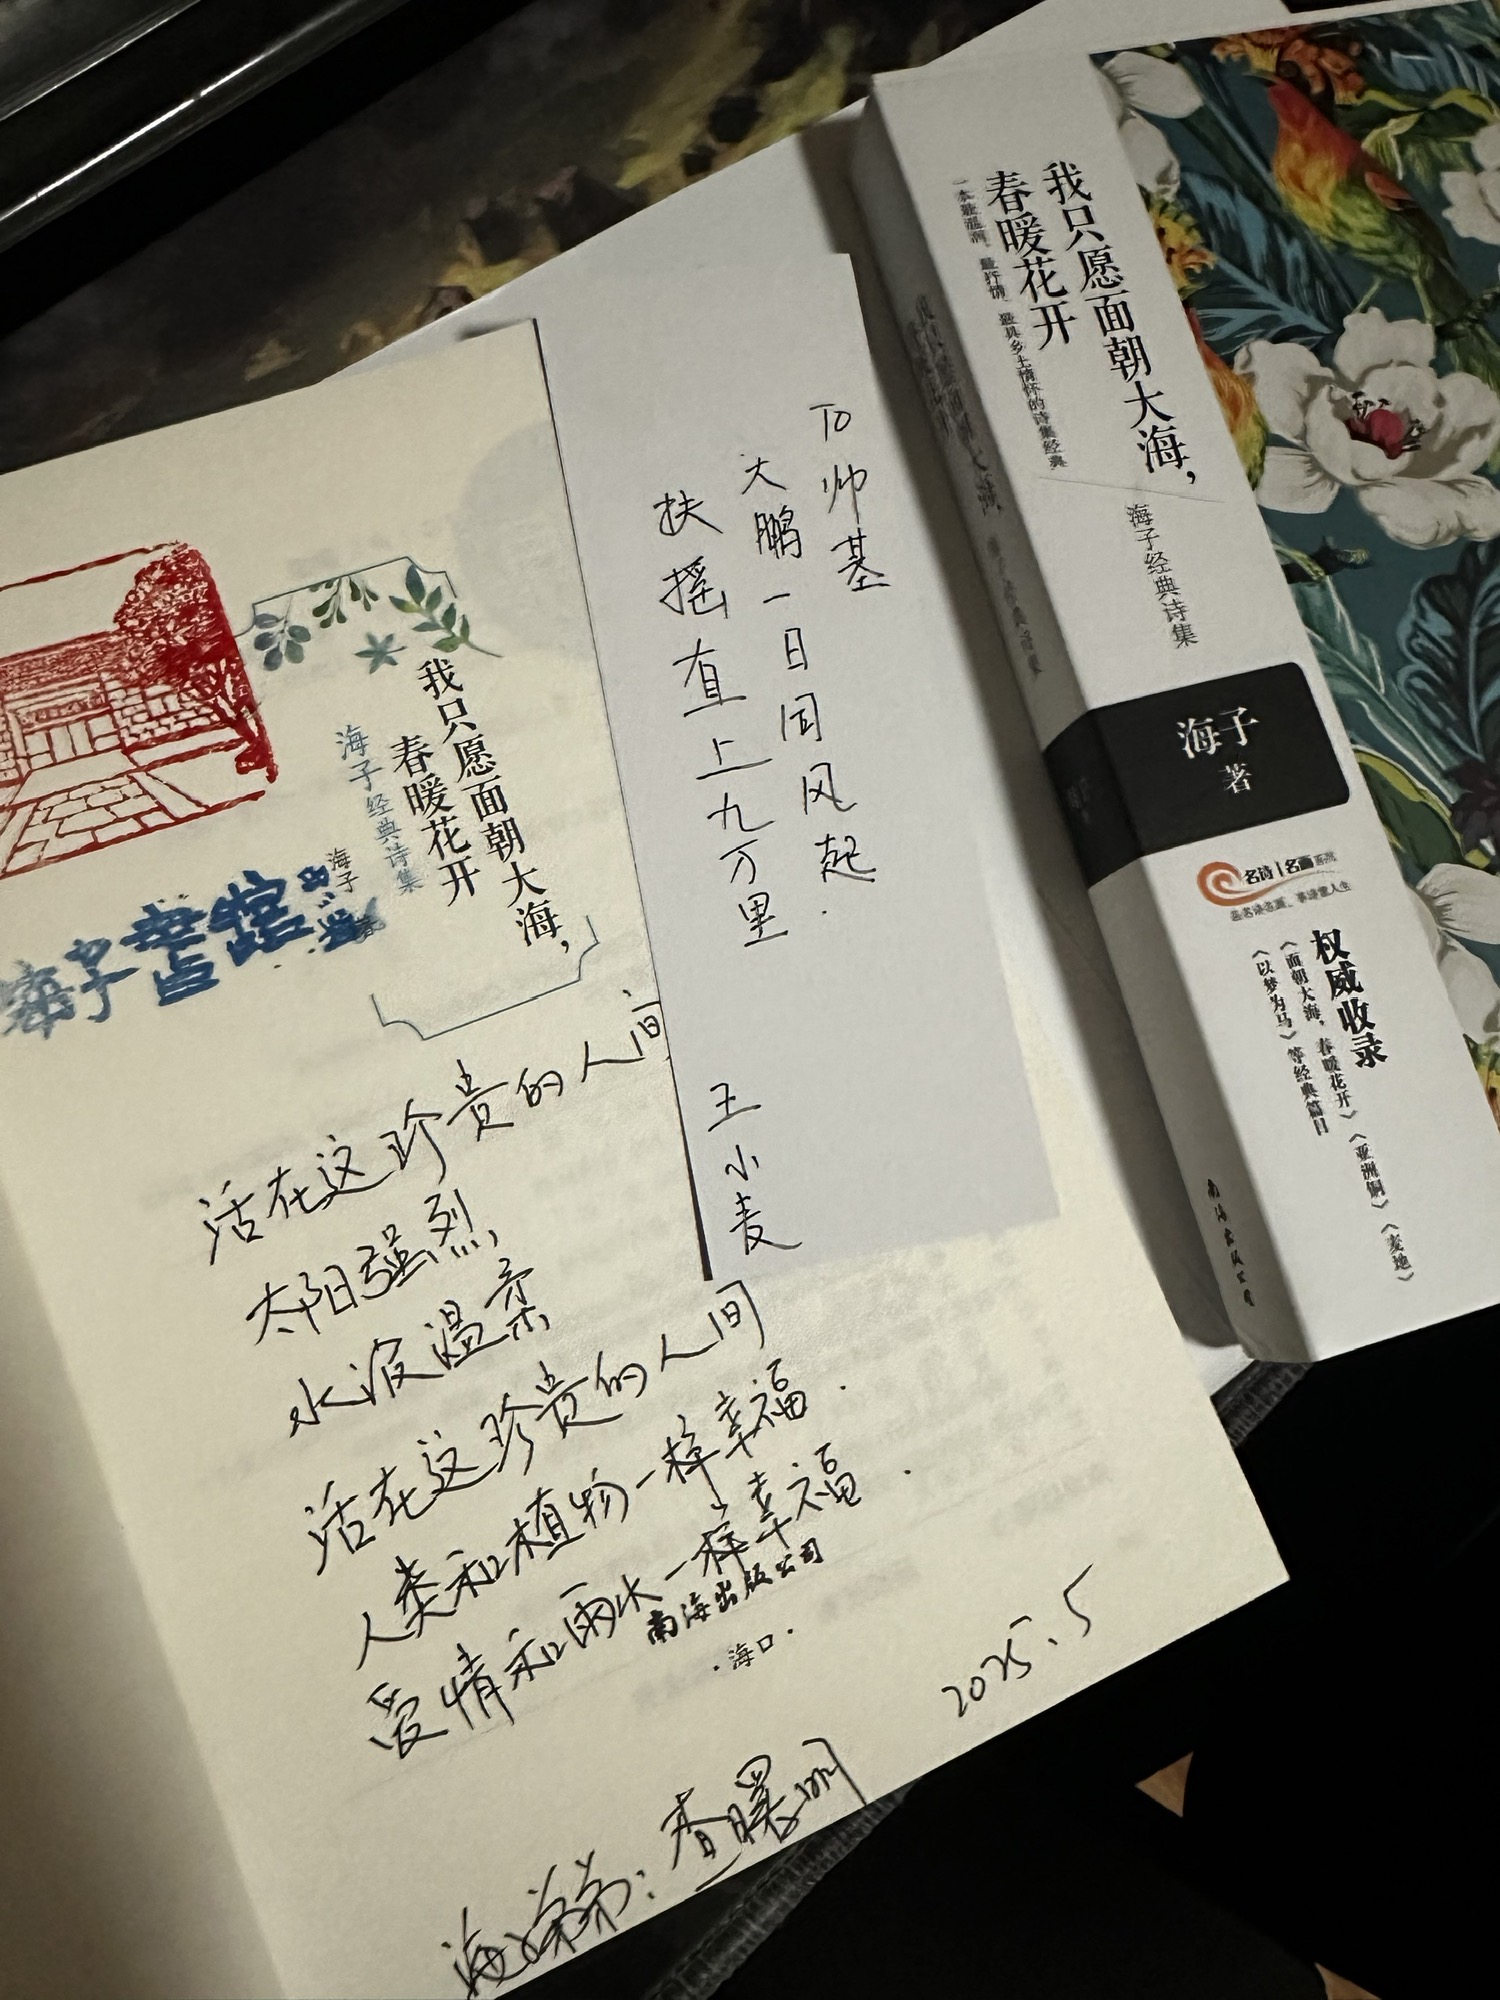 我只愿面朝大海，
春暖花开
一本最温润、最抒情、最具乡土情怀的诗集经典
海子经典诗集
海子
著
名诗|名画
权威收录
《面朝大海，春暖花开》《亚洲铜》《麦地》
《以梦为马》等经典篇目
南海出版公司
To 帅基
大鹏一日同风起.
扶摇直上九万里
王小麦
我只愿面朝大海，
春暖花开
海子经典诗集
海子
海子书馆
活在这珍贵的人间
太阳强烈,
水波温柔
活在这珍贵的人间
人类和植物一样幸福.
爱情和雨水一样幸福.
南海出版公司
·海口·
2025.5
海子弟弟：查曙明